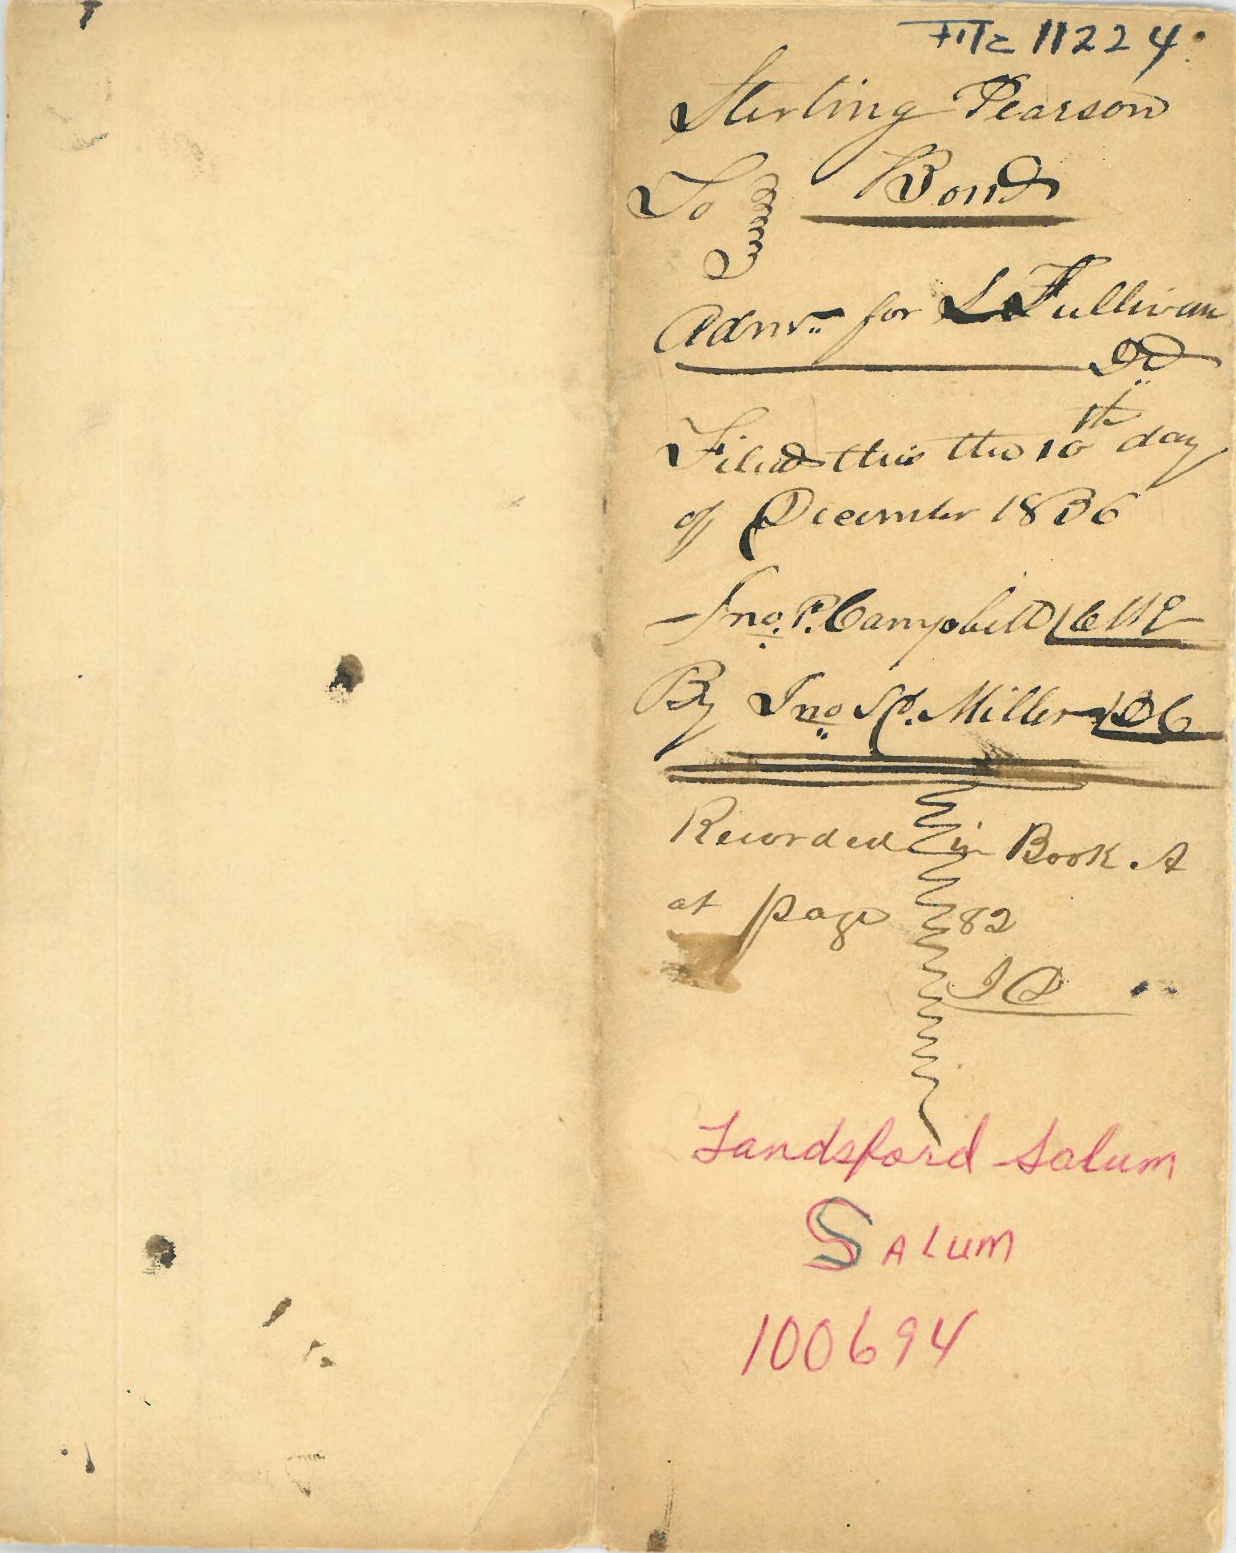 File 11224.
Sterling Pearson
To Bond
Admr. for L Fullivan
Dd
Filed this the 10th day
of December 1836
Jno. P. Campbell
By Jno S. Miller DC
Recorded in Book A
at page 82
Landsford Salum
SALUM
100694